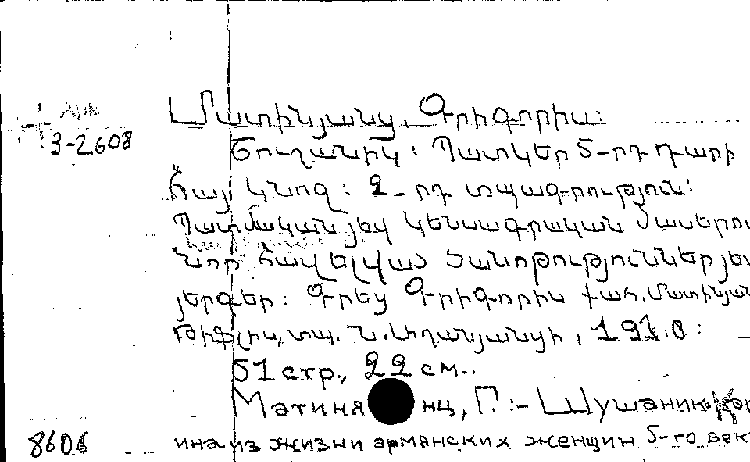 Մատինյանց, Գրիգորիս:
3-2608
Շուշանիկ: Պատկեր 5-րդ դարի
հայ կնոջ: 2-րդ տպագրություն:
Պատմական յեվ կենսագրական մասերու
նոր հավելված ծանոթություններ յեվ
յերգեր: Գրեց Գրիգորիս քահ. Մատինյան
Թիֆլիս, տպ. Ն. Աղանյանցի, 1910:
51 стр., 22 см..
Матиня нц, Г. :- Шушаник
8606 ина из жизни армянских женщин 5-го век